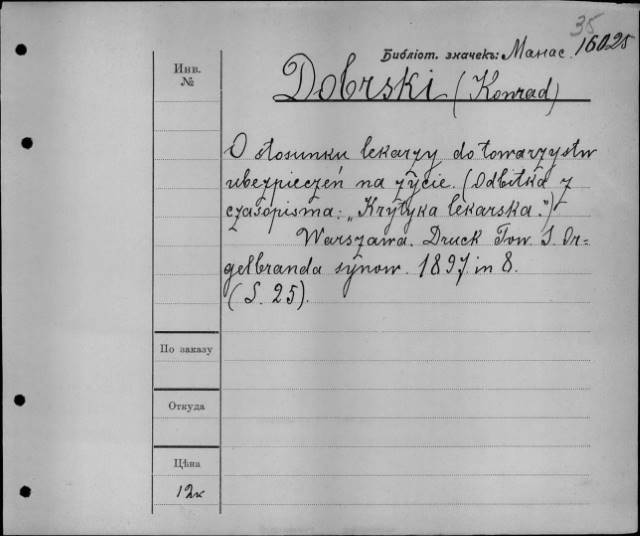 35
Библіот. значекъ: Манас. 16025
Инв.
№
Dobrski (Konrad)
O stosunku lekarzy do towarzystw
ubezpieczeń na życie. (Odbitka z
czasopisma: „Krytyka lekarska.")
Warszawa. Druck Tow. S. Or-
gelbranda synow. 1897. in 8.
(S. 25).
По заказу
Откуда
Цѣна
12к